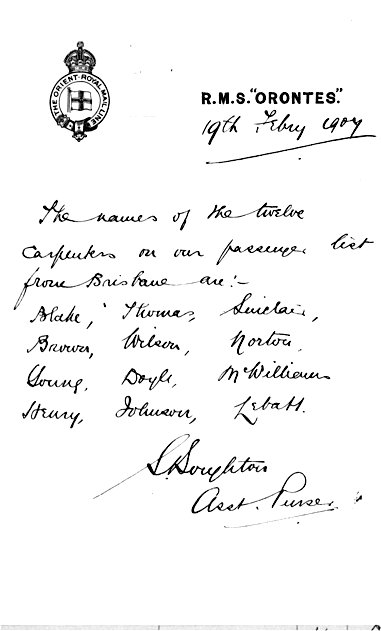 THE ORIENT-ROYAL MAIL LINE
R.M.S. "ORONTES."
19th Febry 1907
The names of the twelve
Carpenters on our passenger list
from Brisbane are:-
Blake, Thomas, Sinclair,
Brown, Wilson, Norton,
Young, Doyle, McWilliams
Henry, Johnson, Lebatt.
S. Boughton
Asst. Purser